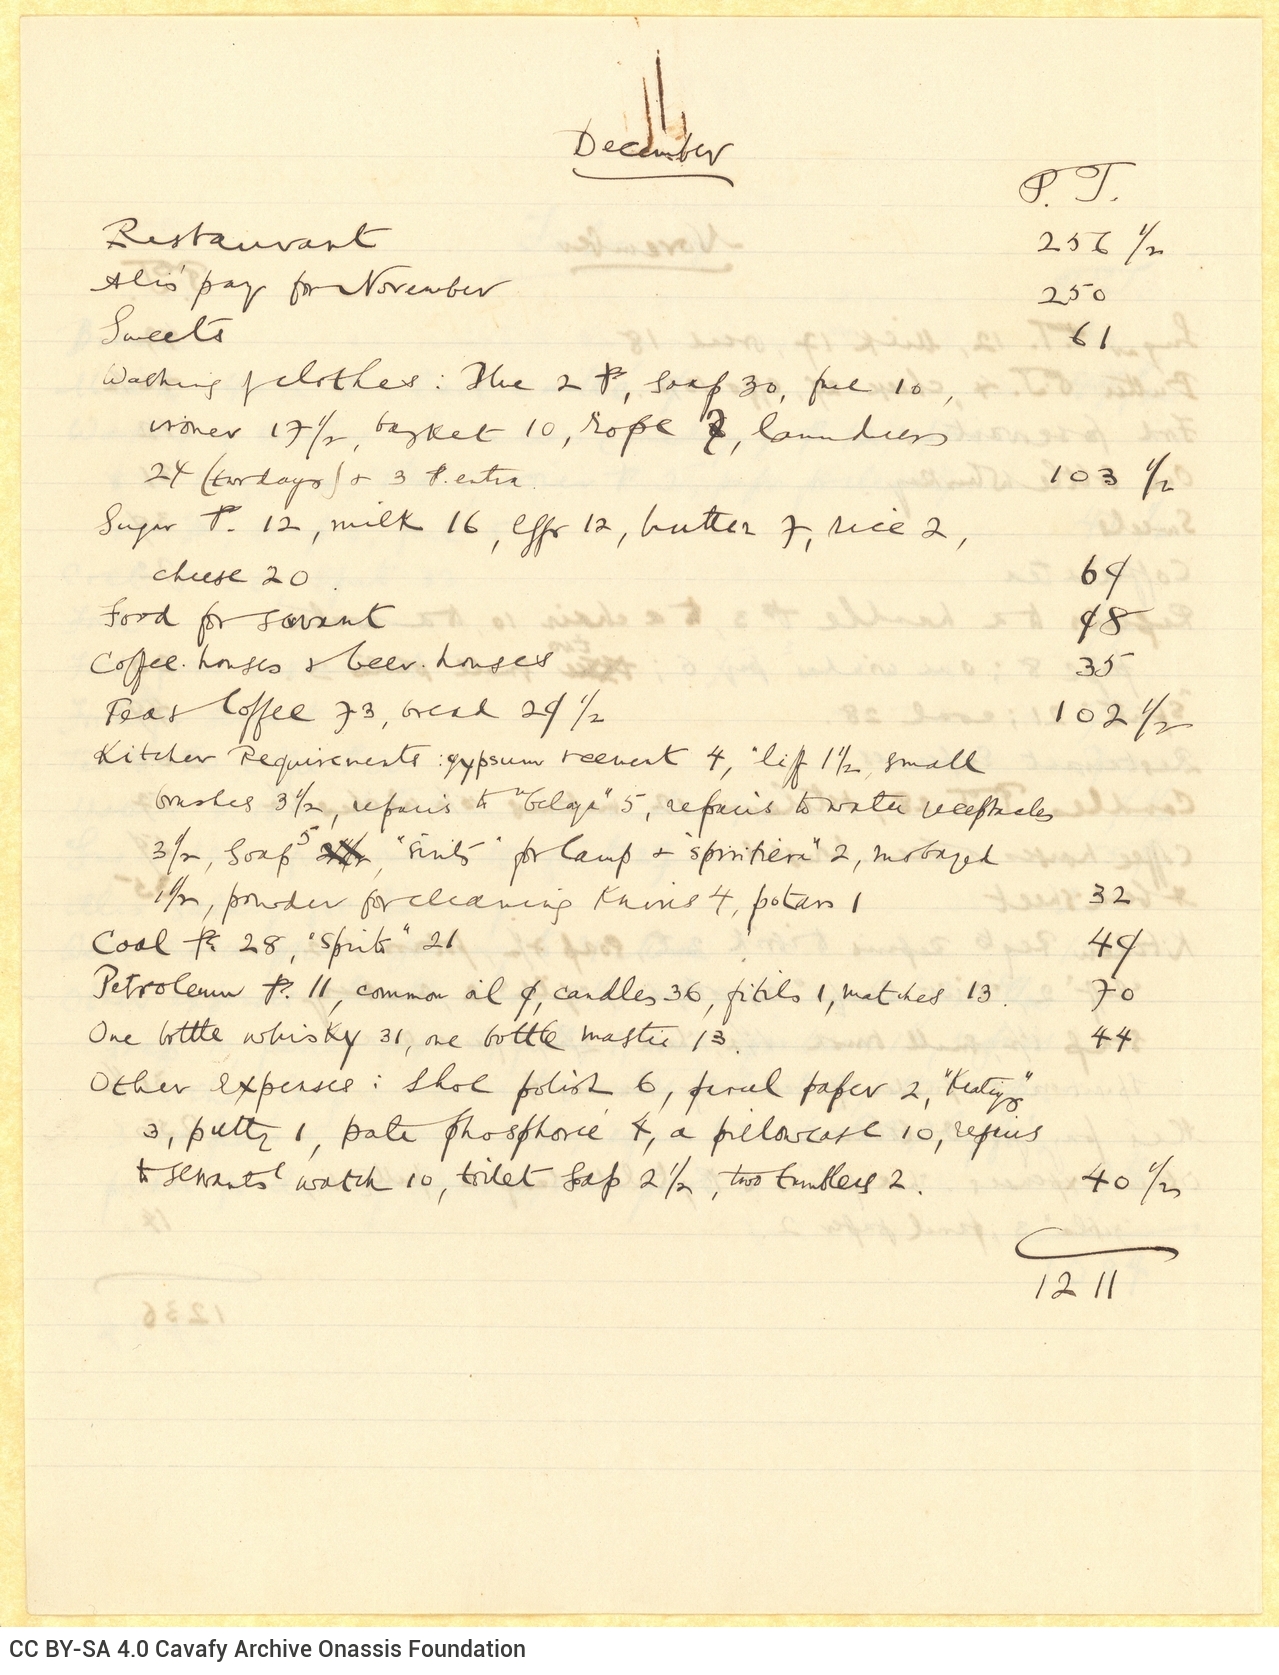 December
P. T.
Restaurant 256 1/2
Ali's pay for November 250
Sweets 61
Washing of clothes: Blue 2 P., soap 30, fuel 10,
ironer 17 1/2, basket 10, rope 7, laundress
24 (two days) & 3 P. extra. 103 1/2
Sugar P. 12, milk 16, eggs 12, butter 7, rice 2,
cheese 20. 69
Food for servant 98
Coffee-houses & beer-houses 35
Tea & Coffee 73, bread 29 1/2 102 1/2
Kitchen Requirements: gypsum & cement 4, "lif" 1 1/2, small
brushes 3 1/2, repairs to 5, repairs to water receptacles
3 1/2, Soap 5, "Spirits" for lamp & "spiritiera" 2,
1 1/2, powder for cleaning Knives 4, 1 32
Coal P. 28, "Spirits" 21 49
Petroleum P. 11, common oil 9, candles 36, fitils 1, matches 13. 70
One bottle whisky 31, one bottle mastic 13. 44
Other expenses: Shoe polish 6, paper 2, "Keatings"
3, putty 1, pate phosphorie 4, a pillowcase 10, repairs
to servants' watch 10, toilet Soap 2 1/2, two tumblers 2. 40 1/2
1211
CC BY-SA 4.0 Cavafy Archive Onassis Foundation